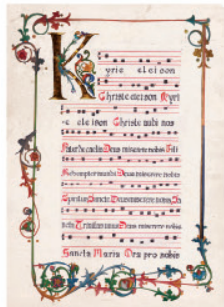 Kyrie eleison
Christe eleison Kyri
e eleison Christe audi nos
Pater de caelis Deus miserere nobis Fili
Redemptor mundi Deus miserere nobis
Spiritus Sancte Deus miserere nobis Sn
Trinitas unus Deus miserere nobis
Sancta Maria Ora pro nobis